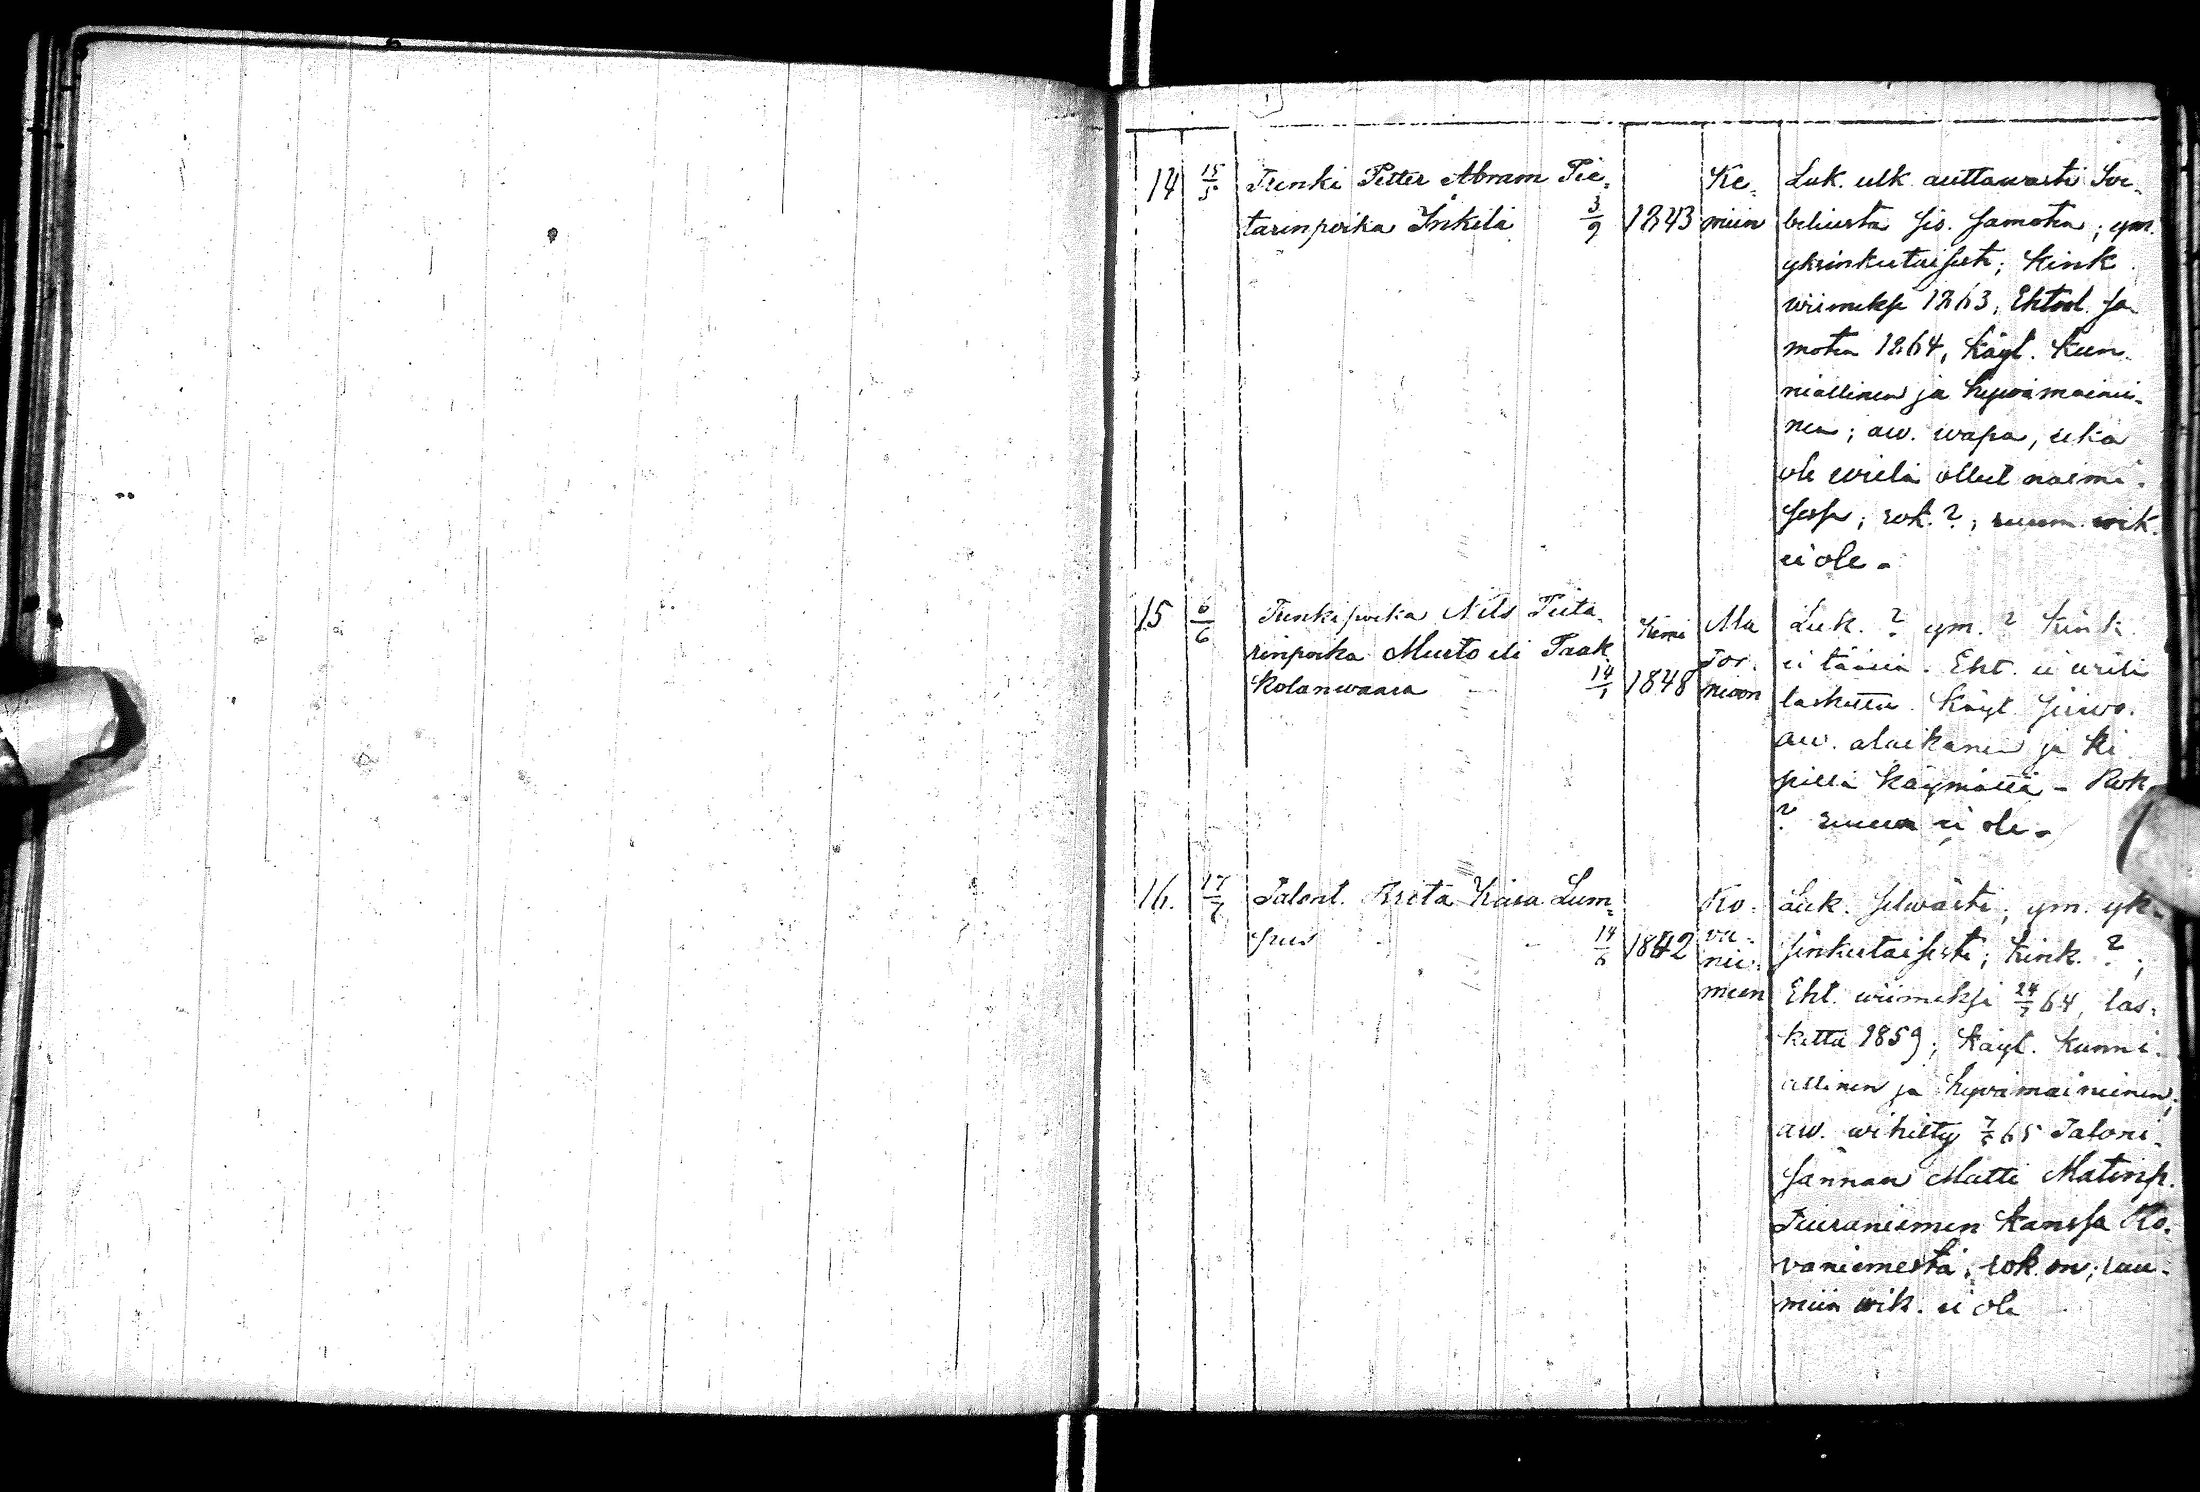 14 15/5 Trenki Petter Abram Pie-
tarinpoika Inkilä 3/9 1843
Ke-
miin
Luk. ulk. auttawasti Swe-
beliusta sis. samoten; ym.
yksinkertaisesti; kink
wiimeksi 1863, Ehtool. sa
moten 1864, käyt. kun-
niallinen ja hywämainei-
nen; aw. wapa, eikä
ole wielä ollut naimi-
sessa; rok. ?; ruum. wik.
ei ole -
15 6/6 Trenkipoika Nils Pieta-
rinpoika Musto eli Taak
kolanwaara 14/1 Kemi 1848
Ala
Tor.
nioon
Luk. ? ym. ? Kink.
ei täällä. Eht. ei wielä
laskettu. Käyt. siiwo.
aw. alaikänen ja ki
pillä käymättä - Rok.
? ruum ei ole -
16. 17/7 Talont. Kreta Kaisa Lum-
pus 14/6 1842
Ro-
va-
nie-
meen
Luk. selwästi; ym. yk-
sinkertaisesti; kink. ?;
Eht. wiimeksi 24/7 64, las-
kettu 1859; käyt. kunni-
allinen ja hywämaineinen;
aw. wihitty 7/5 65 Taloni-
sännän Matti Matinp.
Tiuraniemen kanssa Ro-
vaniemestä; rok. on; ruu-
miin wik. ei ole